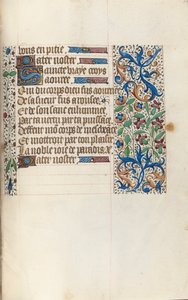 vous en pitie
Pater noster
Saincte vraye croys
aouree
Qui du corps dieu fus aournee
De sa sueur fus arrousee
Et de son sanc enluminee
Par ta vertu par ta puissance
Deffent mō corps de mescheance
Et mottroie par ton plaisir
La noble ioie de paradis
Pater noster